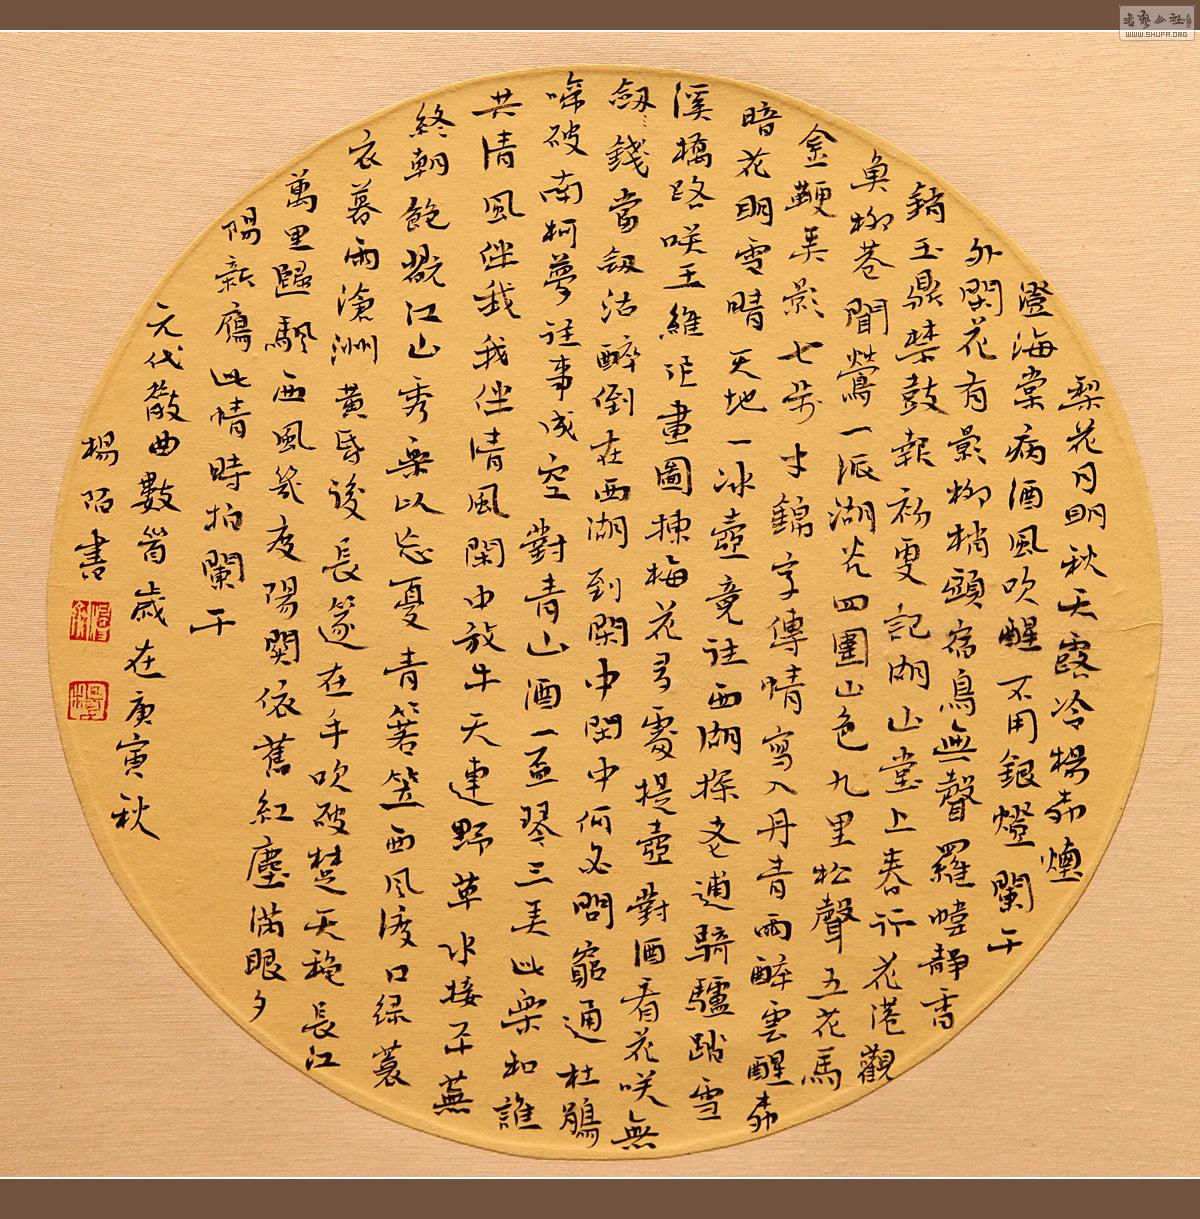 梨花月明秋天露冷楊柳煙
澄海棠病酒風吹醒不用銀燈闌干
外閑花有影柳梢頭宿鳥無聲羅幃靜香
銷玉鼎禁鼓報初更記湖山堂上春行花港觀
魚柳巷聞鶯一派湖光四圍山色九里松聲五花馬
金鞭弄影七步才錦字傳情寫入丹青雨醉雲醒柳
暗花明雪晴天地一冰壺竟往西湖探老逋騎驢踏雪
溪橋路笑王維作畫圖揀梅花多處提壺對酒看花笑無
劍錢當劍沽醉倒在西湖到閑中閑中何必問窮通杜鵑
啼破南柯夢往事成空對青山酒一盃琴三弄此樂和誰
共清風伴我我伴清風閑中放牛天連野草水接平蕪
終朝飽翫江山秀樂以忘憂青箬笠西風渡口綠蓑
衣暮雨滄洲黃昏後長篴在手吹破楚天秋長江
萬里歸帆西風幾度陽關依舊紅塵滿眼夕
陽新雁此情時拍闌干
元代散曲數首歲在庚寅秋
楊陌書
WWW.SHUFA.ORG